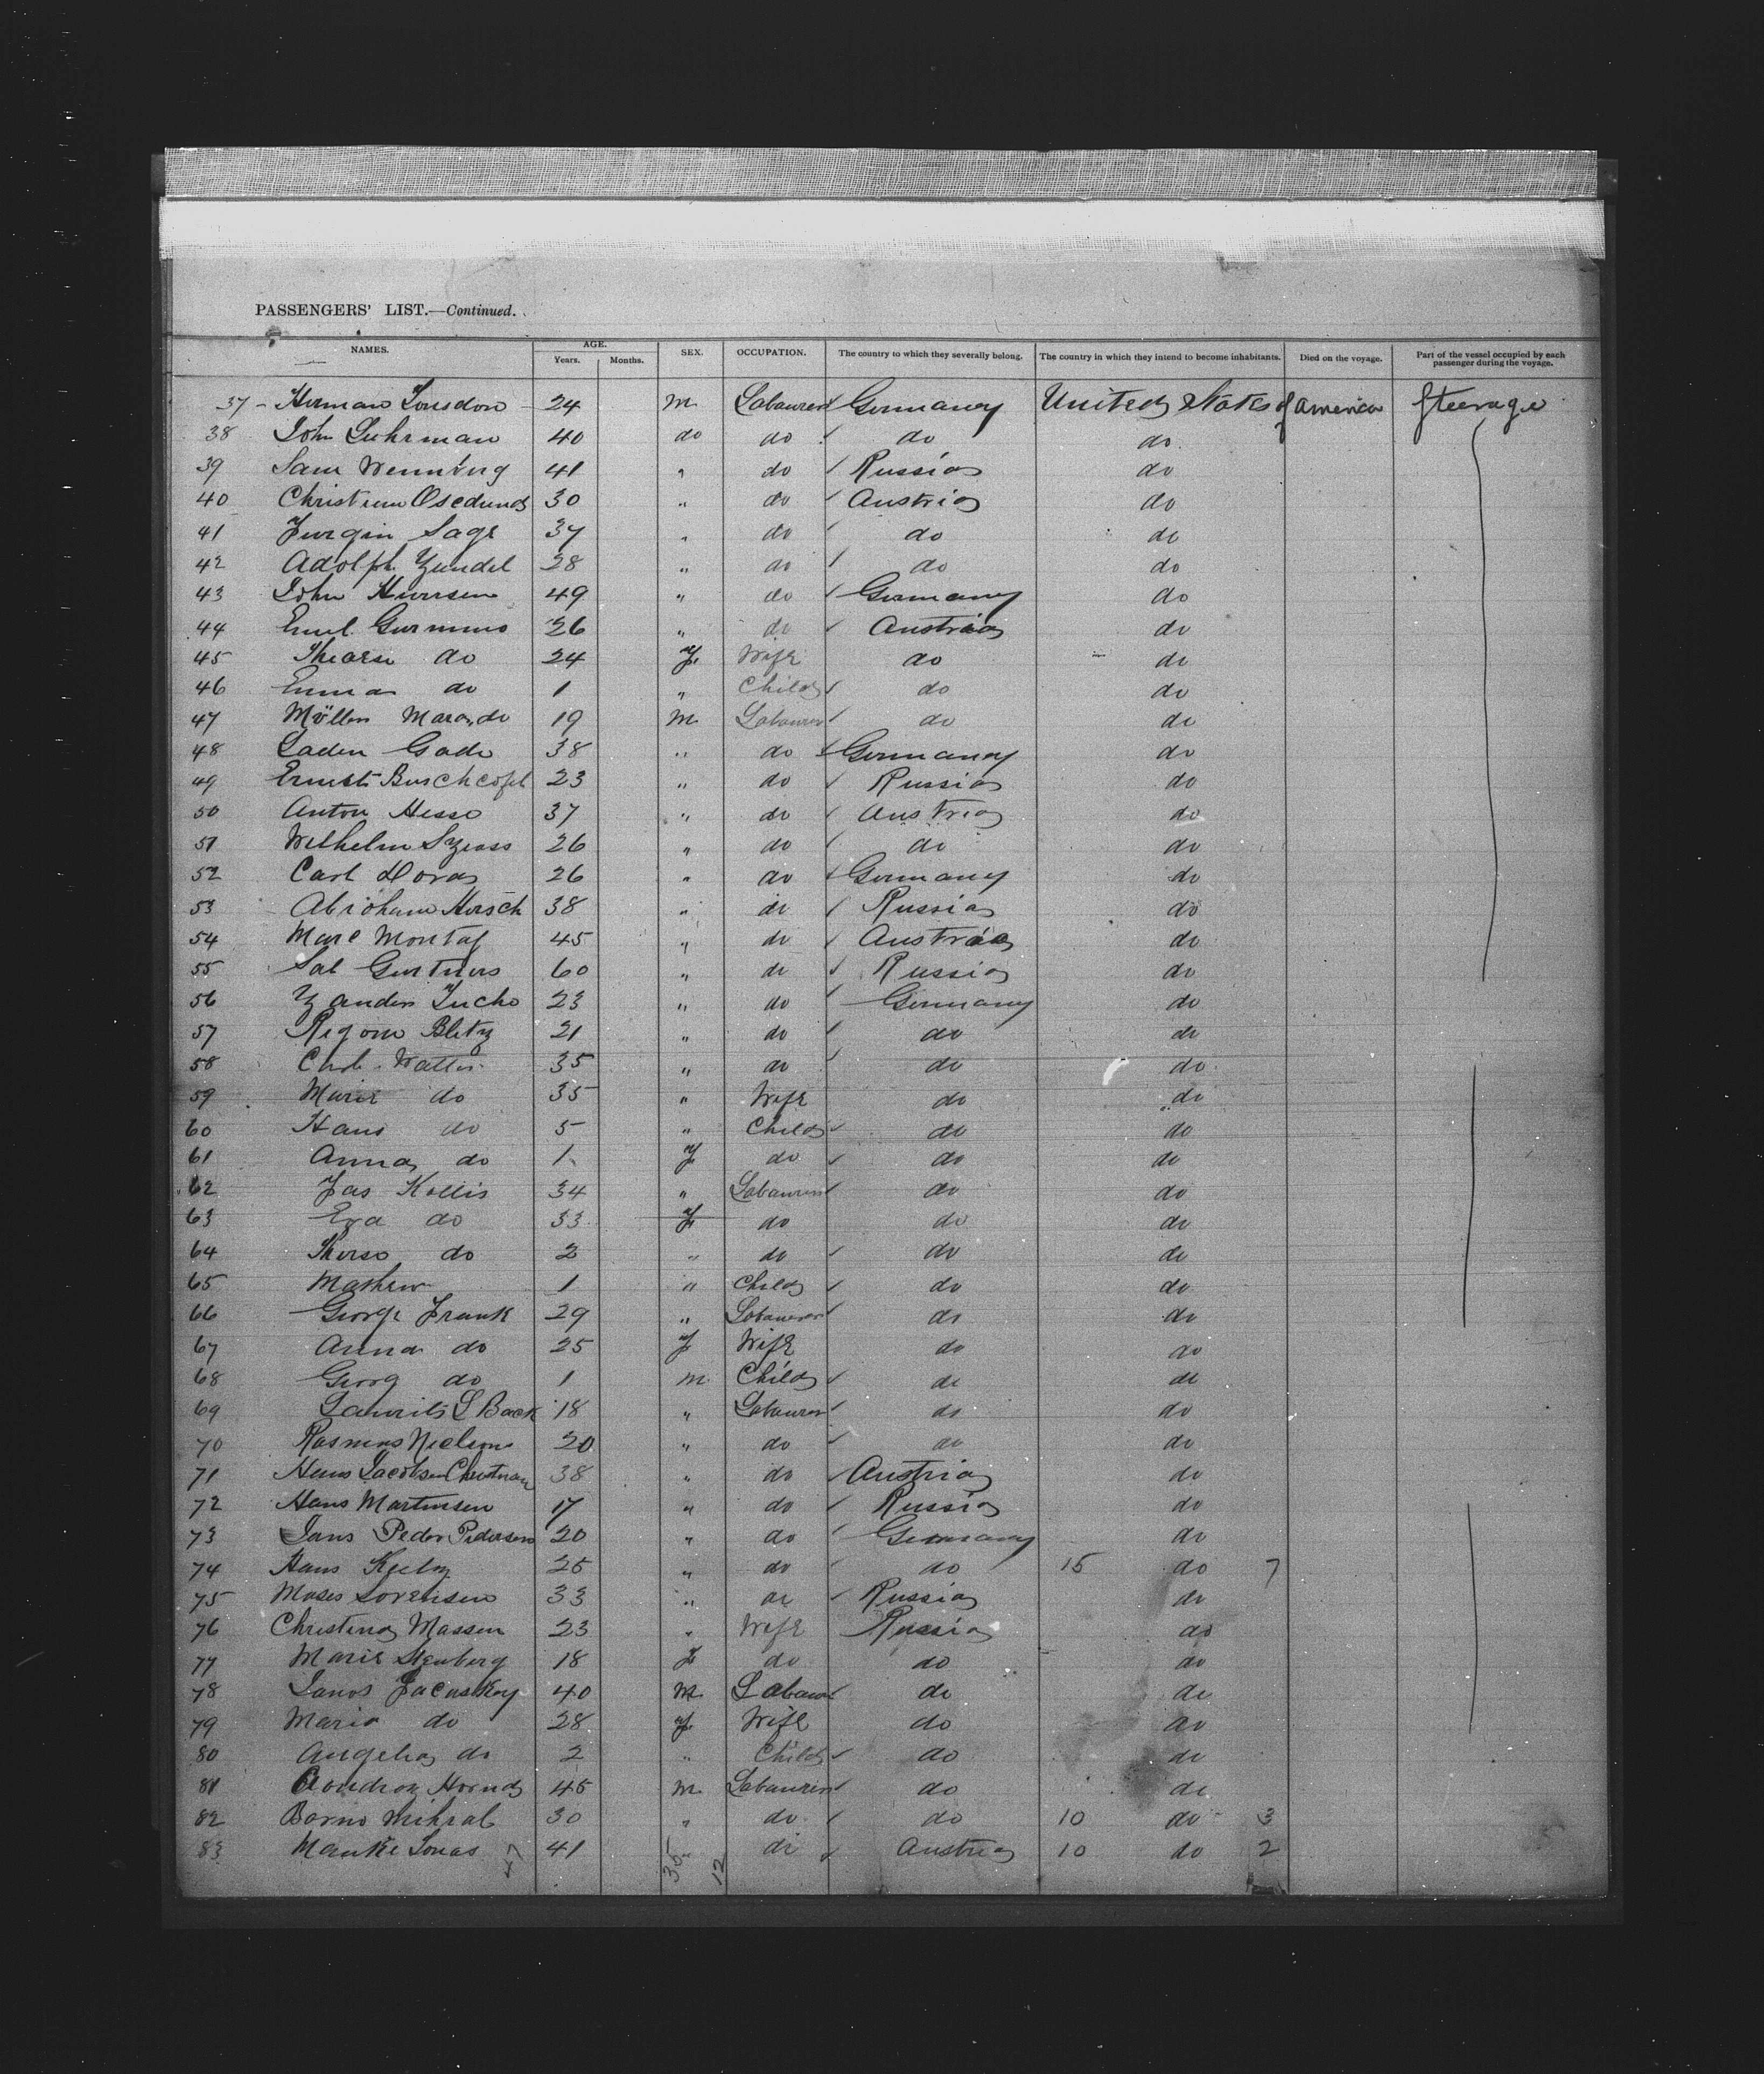 PASSENGERS' LIST.—Continued.
NAMES. AGE. Years. Months. SEX. OCCUPATION. The country to which they severally belong. The country in which they intend to become inhabitants. Died on the voyage. Part of the vessel occupied by each passenger during the voyage.
37 - Herman Lonsdon 24 M. Labourer Germany United States of America Steerage
38 John Luhrman 40 do do do do
39 Sam 41 " do Russia do
40 30 " do Austria do
41 Sage 37 " do do do
42 Adolph Zundel 28 " do do do
43 John 49 " do Germany do
44 Emil 26 " do Austria do
45 do 24 F. Wife do do
46 Emma do 1 " Child do do
47 19 M. Labourer do do
48 Laden Gade 38 " do Germany do
49 Ernest 23 " do Russia do
50 Anton Hesse 37 " do Austria do
51 Wilhelm 26 " do do do
52 Carl 26 " do Germany do
53 Abraham Hersch 38 " do Russia do
54 Marc Montag 45 " do Austria do
55 Sal 60 " do Russia do
56 23 " do Germany do
57 21 " do do do
58 35 " do do do
59 Marie do 35 " Wife do do
60 Hans do 5 " Child do do
61 Anna do 1 F do do do
62 Jas Kollis 34 " Labourer do do
63 Eva do 33 F do do do
64 do 2 " do do do
65 Mathew 1 " Child do do
66 George Frank 29 " Labourer do do
67 Anna do 25 F Wife do do
68 Georg do 1 M. Child do do
69 Laurits S Back 18 " Labourer do do
70 Rasmus Nielsen 20 " do do do
71 Hans Jacobsen 38 " do Austria do
72 Hans Martinsen 17 " do Russia do
73 Jans Peder Pedersen 20 " do Germany do
74 Hans 25 " do do 15 do 7
75 Moses Sorensen 33 " do Russia do
76 Christina Massen 23 " Wife Russia do
77 Marie 18 F do do do
78 Janos 40 M. Labour do do
79 Maria do 28 F Wife do do
80 do 2 " Child do do
81 45 M. Labourer do do
82 Mihral 30 " do do 10 do 3
83 Jonas 41 " do Austria 10 do 2
47 35 12